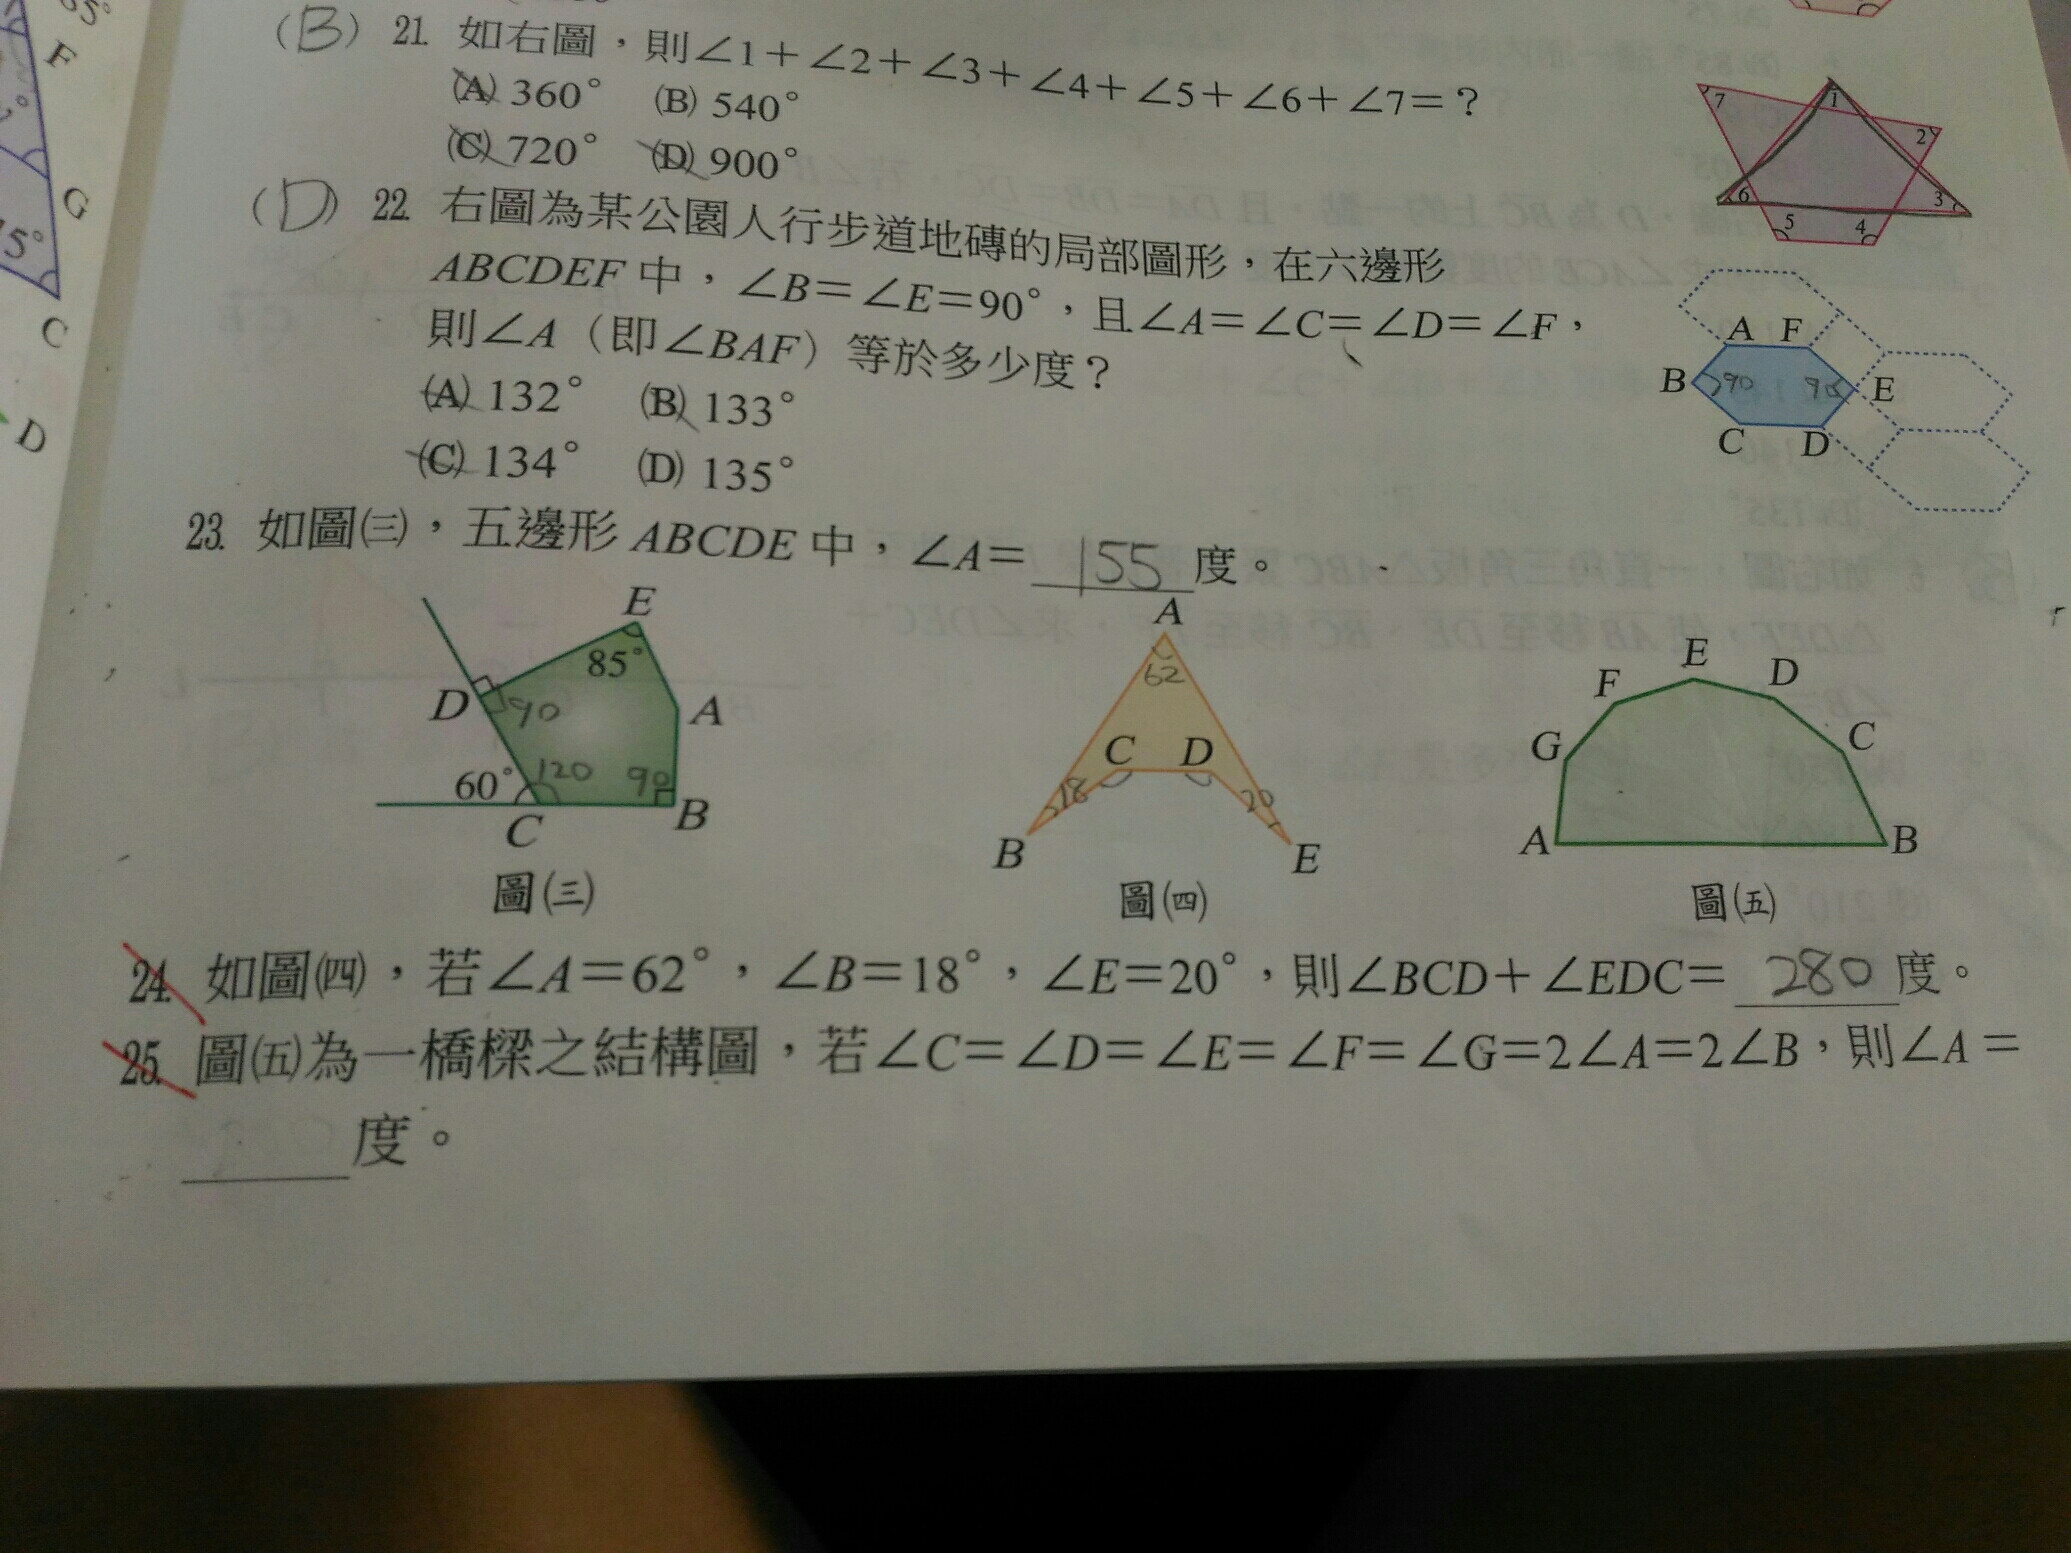 65°
F
G
15°
C
D
(B) 21. 如右圖，則∠1＋∠2＋∠3＋∠4＋∠5＋∠6＋∠7＝？
(A) 360° (B) 540°
(C) 720° (D) 900°
7 1 2 6 3 5 4
(D) 22. 右圖為某公園人行步道地磚的局部圖形，在六邊形
ABCDEF 中，∠B＝∠E＝90°，且∠A＝∠C＝∠D＝∠F，
則∠A（即∠BAF）等於多少度？
(A) 132° (B) 133°
(C) 134° (D) 135°
A F
B 90 90 E
C D
23. 如圖㈢，五邊形 ABCDE 中，∠A＝ 155 度。
E
85°
D 90 A
60° 120 90
C B
圖㈢
A
62
C D
18 20
B E
圖㈣
E
F D
G C
A B
圖㈤
24. 如圖㈣，若∠A＝62°，∠B＝18°，∠E＝20°，則∠BCD＋∠EDC＝ 280 度。
25. 圖㈤為一橋樑之結構圖，若∠C＝∠D＝∠E＝∠F＝∠G＝2∠A＝2∠B，則∠A＝
度。